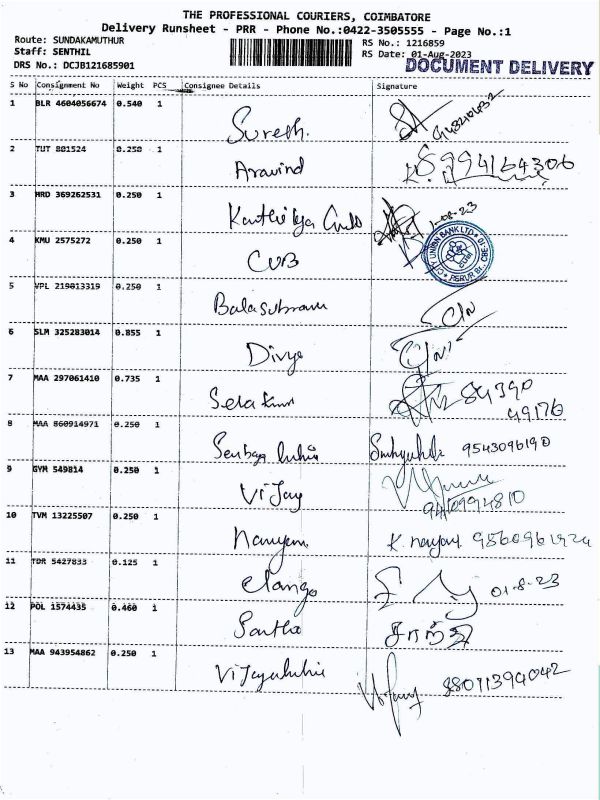 THE PROFESSIONAL COURIERS, COIMBATORE
Delivery Runsheet - PRR - Phone No.:0422-3505555 - Page No.:1
Route: SUNDAKAMUTHUR
RS No.: 1216859
Staff: SENTHIL
RS Date: 01-Aug-2023
DRS No.: DCJB121685901
DOCUMENT DELIVERY
S No Consignment No Weight PCS Consignee Details Signature
1 BLR 4604056674 0.540 1 Suresh.
2 TUT 801524 0.250 1 Aravind
3 HRD 369262531 0.250 1
4 KMU 2575272 0.250 1 CUB
CITY UNION BANK LTD
5 VPL 219013319 0.250 1 Balasubram
6 SLM 325283014 0.855 1 Divya
7 MAA 297061410 0.735 1 84390
49176
8 MAA 860914971 0.250 1 9543096190
9 GYM 549814 0.250 1 Vijay
9410994810
10 TVM 13225507 0.250 1
11 TDR 5427833 0.125 1 elango 01-8-23
12 POL 1574435 0.460 1 Santha
13 MAA 943954862 0.250 1